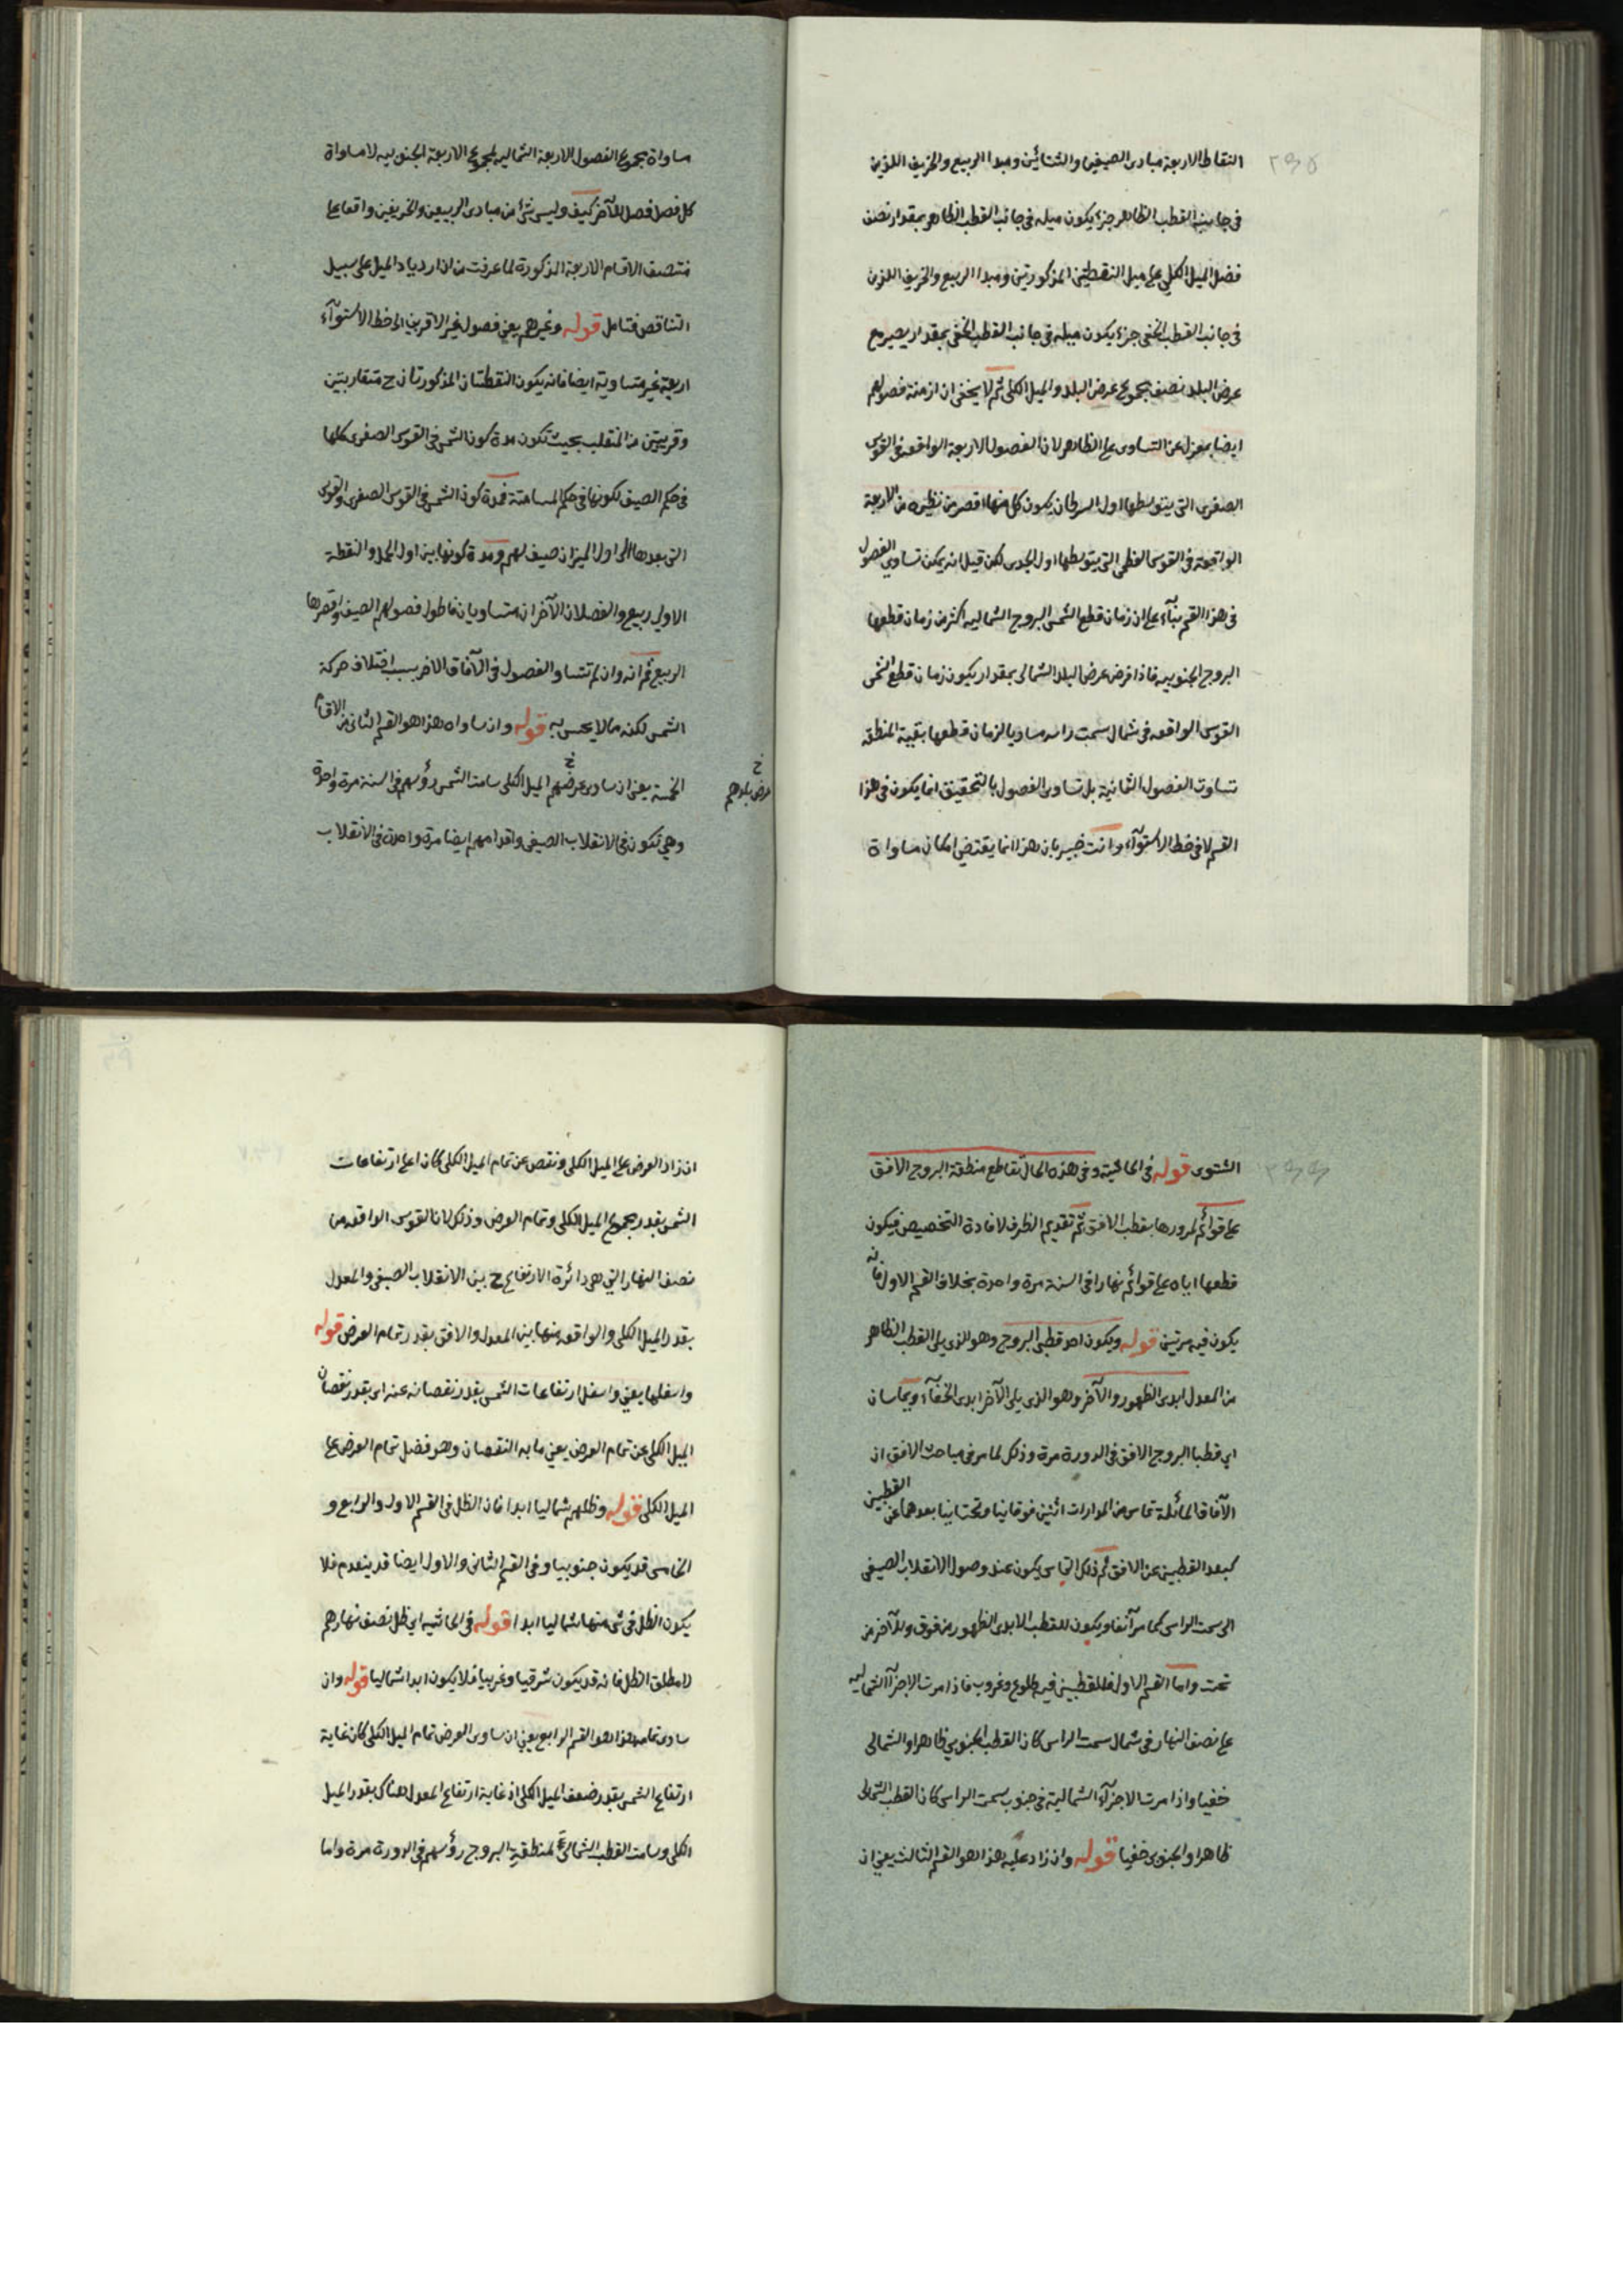 النقاط الاربعة مبادى الصيفين والشتائين ومبدا الربيع والخريف اللذين
فى جانب القطب الظاهر جزء يكون ميله فى جانب القطب الظاهر بمقدار نصف
فضل الميل الكلي على ميل النقطتين المذكورتين ومبدا الربيع والخريف اللذين
فى جانب القطب الخفى جزء يكون ميله فى جانب القطب الخفى بمقدار يصير مع
عرض البلد نصف مجموع عرض البلد والميل الكلى ثم لا يخفى ان ازمنة فصولهم
ايضا بمعزل عن التساوى على الظاهر لان الفصول الاربعة الواقعة فى القوس
الصغرى التى يتوسطها اول السرطان يكون كل منها اقصر من نظيره من الاربعة
الواقعة فى القوس العظمى التى يتوسطها اول الجدى لكن قيل انه يمكن تساوى الفصول
فى هذا القسم بنآء على ان زمان قطع الشمس البروج الشماليه اكثر من زمان قطعها
البروج الجنوبيه فاذا فرض عرض البلد الشمالى بمقدار يكون زمان قطع الشمس
القوس الواقعه فى شمال سمت راسه مساويا لزمان قطعها بقية المنطقه
تساوت الفصول الثمانية بل تساوى الفصول بالتحقيق انما يكون فى هذا
القسم لا فى خط الاستوآء وانت خبير بان هذا انما يقتضى امكان مساواة
مساواة مجموع الفصول الاربعة الشماليه لمجموع الاربعة الجنوبيه لا مساواة
كل فصل فصل للآخر كيف وليس شئ من مبادى الربيعين والخريفين واقعا على
منتصف الاقسام الاربعة المذكورة لما عرفت من ان ازدياد الميل على سبيل
التناقص فتامل قوله وغيرهم يعنى فصول غير الاقربين الى خط الاستوآء
اربعة غير متساوية ايضا فانه يكون النقطتان المذكورتان ح متقاربتين
وقريبتين من المنقلب بحيث تكون مدة كون الشمس فى القوس الصغرى كلها
فى حكم الصيف لكونها فى حكم المسامتة فمدة كون الشمس فى القوس الصغرى والقوس
التى بعدها الى اول الميزان صيف لهم ومدة كونها بين اول الحمل والنقطة
الاولى ربيع والفصلان الآخران متساويان فاطول فصولهم الصيف واقصرها
الربيع ثم انه وان لم تتساو الفصول فى الآفاق الاخر بسبب اختلاف حركة
الشمس لكنه مما لا يحس به قوله وان ساواه هذا هو القسم الثانى من الاقسام
الخمسة يعنى ان ساوى عرضهم الميل الكلى سامت الشمس رؤسهم فى السنة مرة واحدة
خ
عرض بلدهم
وهى تكون فى الانقلاب الصيفى واقدامهم ايضا مرة واحدة فى الانقلاب
الشتوى قوله فى الحاشية وفى هذه الحال تقاطع منطقة البروج الافق
على قوائم لمرورها بقطب الافق ثم تقديم الظرف لافادة التخصيص فيكون
قطعها اياه على قوائم نهارا فى السنة مرة واحدة بخلاف القسم الاول فانه
يكون فيه مرتين قوله ويكون احد قطبى البروج وهو الذى يلى القطب الظاهر
من المعدل ابدى الظهور والآخر وهو الذى يلى الآخر ابدى الخفآء ويماسان
اى قطبا البروج الافق فى الدورة مرة وذلك لما مر فى مباحث الافق ان
الآفاق المائلة تماس من المدارات اثنين فوقانيا وتحتانيا بعدهما عن القطبين
كبعد القطبين عن الافق ثم ذلك التماس يكون عند وصول الانقلاب الصيفى
الى سمت الراس كما مر آنفا ويكون للقطب الابدى الظهور من فوق وللآخر من
تحت واما القسم الاول فللقطبين فيه طلوع وغروب فاذا مرت الاجزآء الشماليه
على نصف النهار فى شمال سمت الراس كان القطب الجنوبي ظاهرا والشمالى
خفيا واذا مرت الاجزآء الشمالية فى جنوب سمت الراس كان القطب الشمالى
ظاهرا والجنوبى خفيا قوله وان زاد عليه هذا هو القسم الثالث يعنى ان
ان زاد العرض على الميل الكلى ونقص عن تمام الميل الكلى كان اعلى ارتفاعات
الشمس بقدر مجموع الميل الكلى وتمام العرض وذلك لان القوس الواقعه من
نصف النهار التى هى دائرة الارتفاع ح بين الانقلاب الصيفى والمعدل
بقدر الميل الكلى والواقعه منها بين المعدل والافق بقدر تمام العرض قوله
واسفلها يعنى واسفل ارتفاعات الشمس بقدر نقصانه عنه اى بقدر نقصان
الميل الكلى عن تمام العرض يعنى ما به النقصان وهو فضل تمام العرض على
الميل الكلى قوله وظلهم شماليا ابدا فان الظل فى القسم الاول والرابع و
الخامس قد يكون جنوبيا وفى القسم الثانى والاول ايضا قد ينعدم فلا
يكون الظل فى شئ منها شماليا ابدا قوله فى الحاشيه اى ظل نصف نهارهم
لا مطلق الظل فانه قد يكون شرقيا وغربيا فلا يكون ابدا شماليا قوله وان
ساوى تمامه هذا هو القسم الرابع يعنى ان ساوى العرض تمام الميل الكلى كان غاية
ارتفاع الشمس بقدر ضعف الميل الكلى اذ غاية ارتفاع المعدل هناك بقدر الميل
الكلى وسامت القطب الشمالى لمنطقة البروج رؤسهم فى الدورة مرة واما